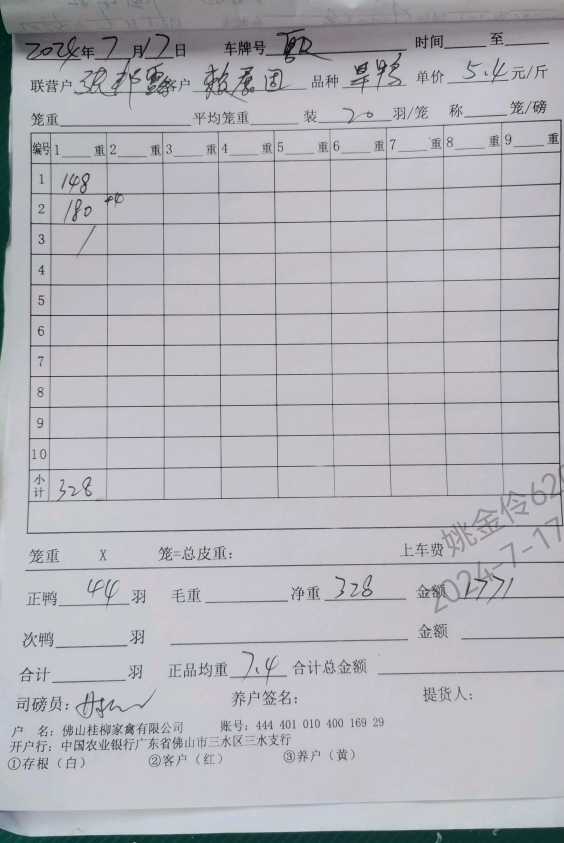 2024年7月17日 车牌号 时间____至____
联营户 客户 品种 旱鸭 单价 5.4 元/斤
笼重____ 平均笼重____ 装 20 羽/笼 称____笼/磅
编号 1____重 2____重 3____重 4____重 5____重 6____重 7____重 8____重 9____重
1 148
2 180
3 /
4
5
6
7
8
9
10
小计 328
笼重 X 笼=总皮重: 上车费
正鸭 44 羽 毛重____ 净重 328 金额 1771
次鸭____羽 金额____
合计____羽 正品均重 7.4 合计总金额____
司磅员: 养户签名: 提货人:
户 名: 佛山桂柳家禽有限公司 账号: 444 401 010 400 169 29
开户行: 中国农业银行广东省佛山市三水区三水支行
①存根(白) ②客户(红) ③养户(黄)
姚金伶62
2024-7-17